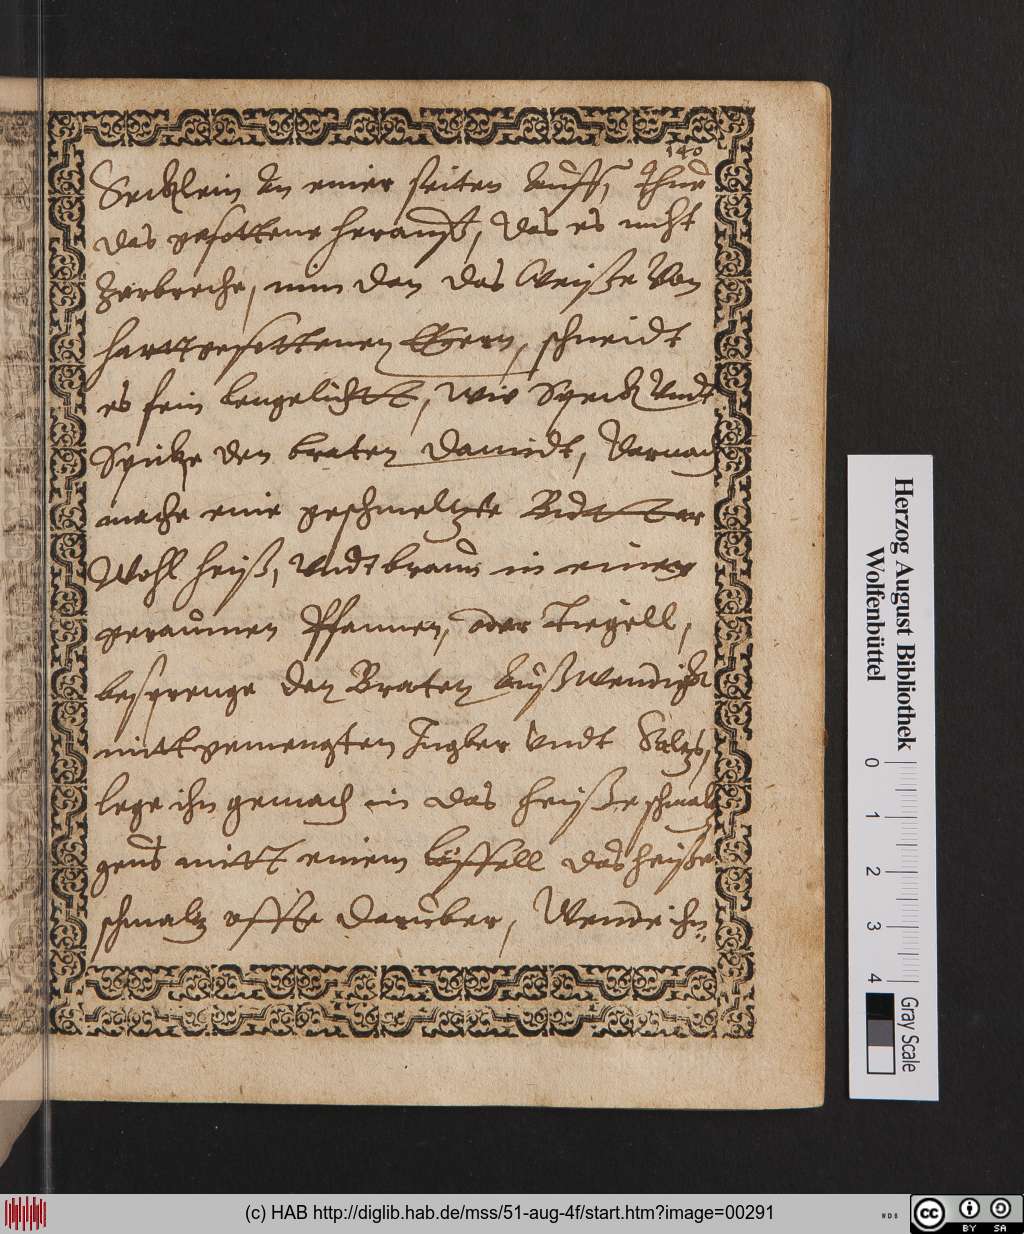 140
Secklein an einer seiten auff, Thue
das gesottene herauß, das es nicht
Zerbreche, nim den das Weiße Von
harttgesottenen Eÿern, schneidt
es fein lengelichtt, wie Speck Vndt
Spicke den braten damidt, Darnach
mache eine geschmeltzte Budtter
Wohl heiß, Vndt braun in einer
geraumen Pfannen, oder Tiegell,
besprenge den Braten außwendigk
mitt gemengten Ingber Vndt Saltz,
lege ihn gemach in das heiße schmaltz
geuß mitt einem löffell das heiße
schmaltz offte darüber, Wende ihn
Herzog August Bibliothek
Wolfenbüttel
0 1 2 3 4
Gray Scale
(c) HAB http://diglib.hab.de/mss/51-aug-4f/start.htm?image=00291
WDB
cc BY SA